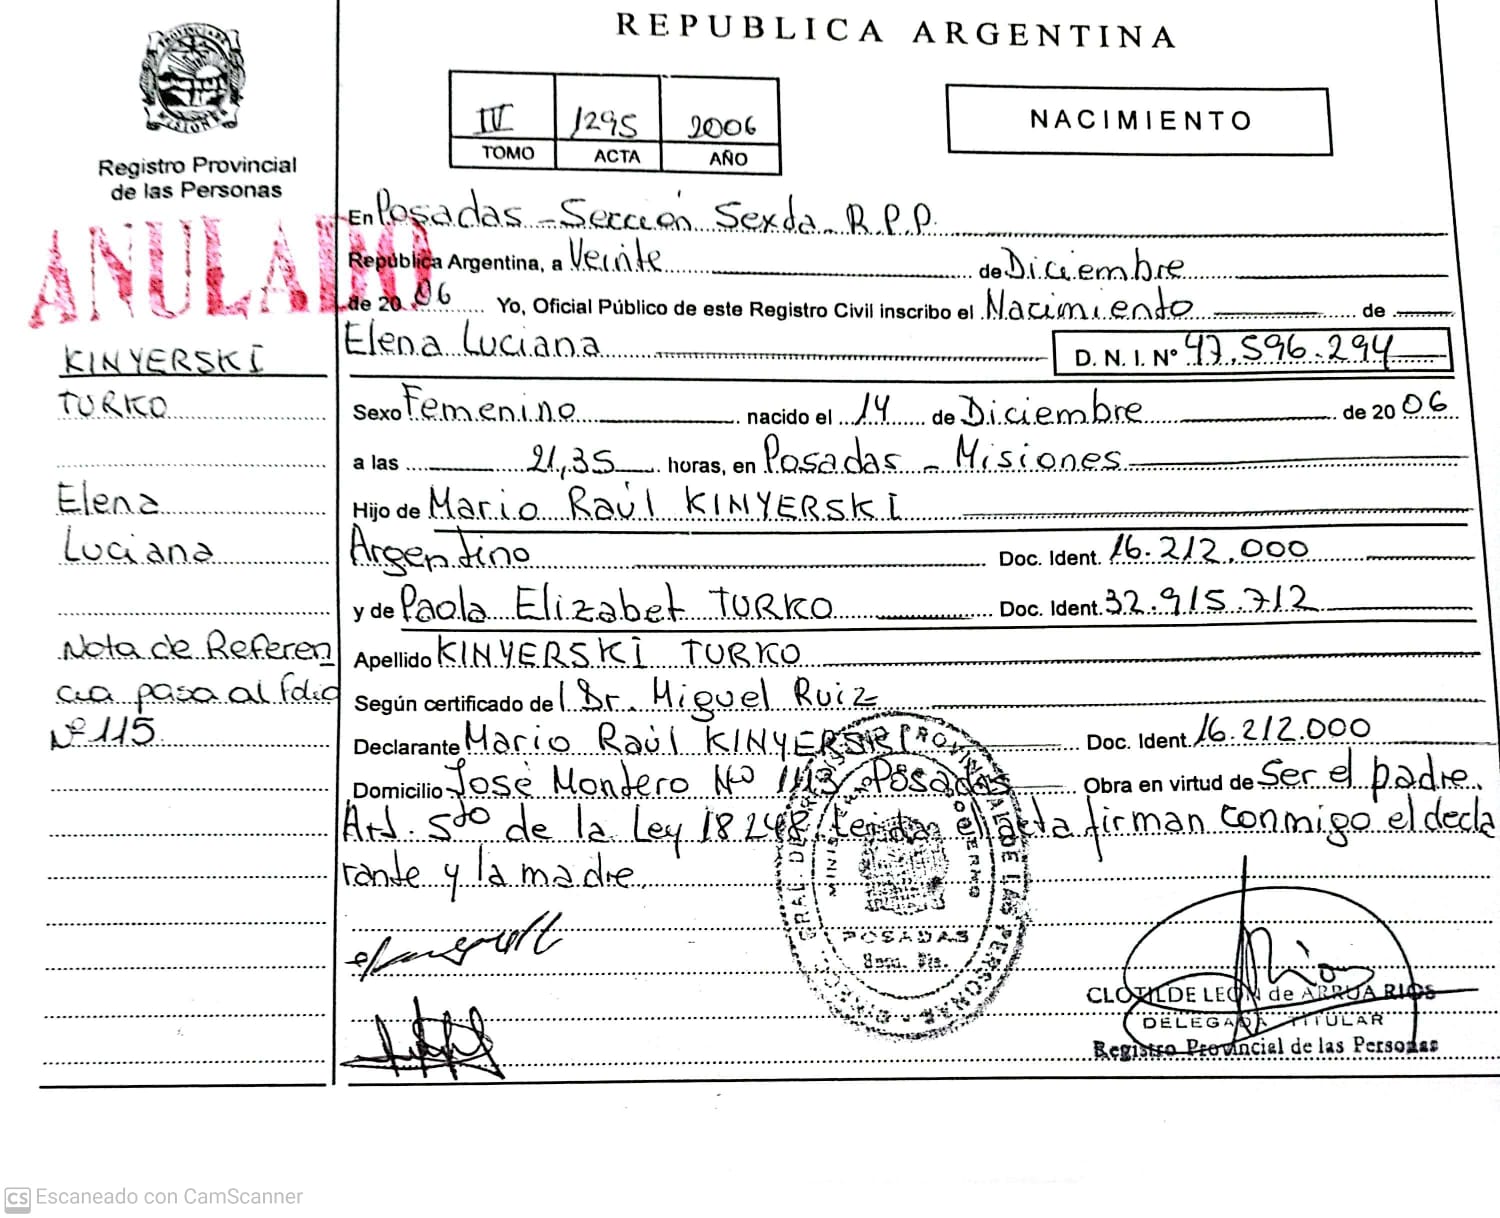 REPUBLICA ARGENTINA
PROVINCIA DE
MISIONES
Registro Provincial
de las Personas
III 1295 2006
TOMO ACTA AÑO
NACIMIENTO
ANULADO
KINYERSKI
TURKO
Elena
Luciana
Nota de Referen
cia pasa al folio
Nº 115
En Posadas - Sección Sexda. R.P.P.
República Argentina, a Veinte de Diciembre
de 2006 Yo, Oficial Público de este Registro Civil inscribo el Nacimiento de
Elena Luciana D. N. I. Nº 47.596.294
Sexo Femenino nacido el 14 de Diciembre de 2006
a las 21,35 horas, en Posadas - Misiones
Hijo de Mario Raúl KINYERSKI
Argentino Doc. Ident. 16.212.000
y de Paola Elizabet TURKO Doc. Ident. 32.915.712
Apellido KINYERSKI TURKO
Según certificado del Dr. Miguel Ruiz
Declarante Mario Raúl KINYERSKI Doc. Ident. 16.212.000
Domicilio José Montero Nº 1113 Posadas Obra en virtud de Ser el padre.
Art. 5to de la Ley 18248 el acta firman conmigo el decla
rante y la madre.
POSADAS
CLOTILDE LEON de ARRUA RIOS
DELEGADA TITULAR
Registro Provincial de las Personas
CS Escaneado con CamScanner